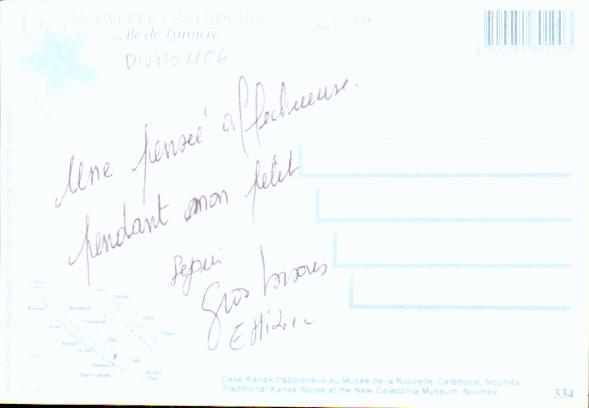 NOUVELLE - CALÉDONIE
... île de lumière
DIVM01106
3700051801003
Une pensée affectueuse.
pendant mon petit
Sejour
Gros bisous
Case Kanak traditionelle au Musée de la Nouvelle Calédonie, Nouméa
Traditional Kanak house at the New Caledonia Museum, Nouméa
334